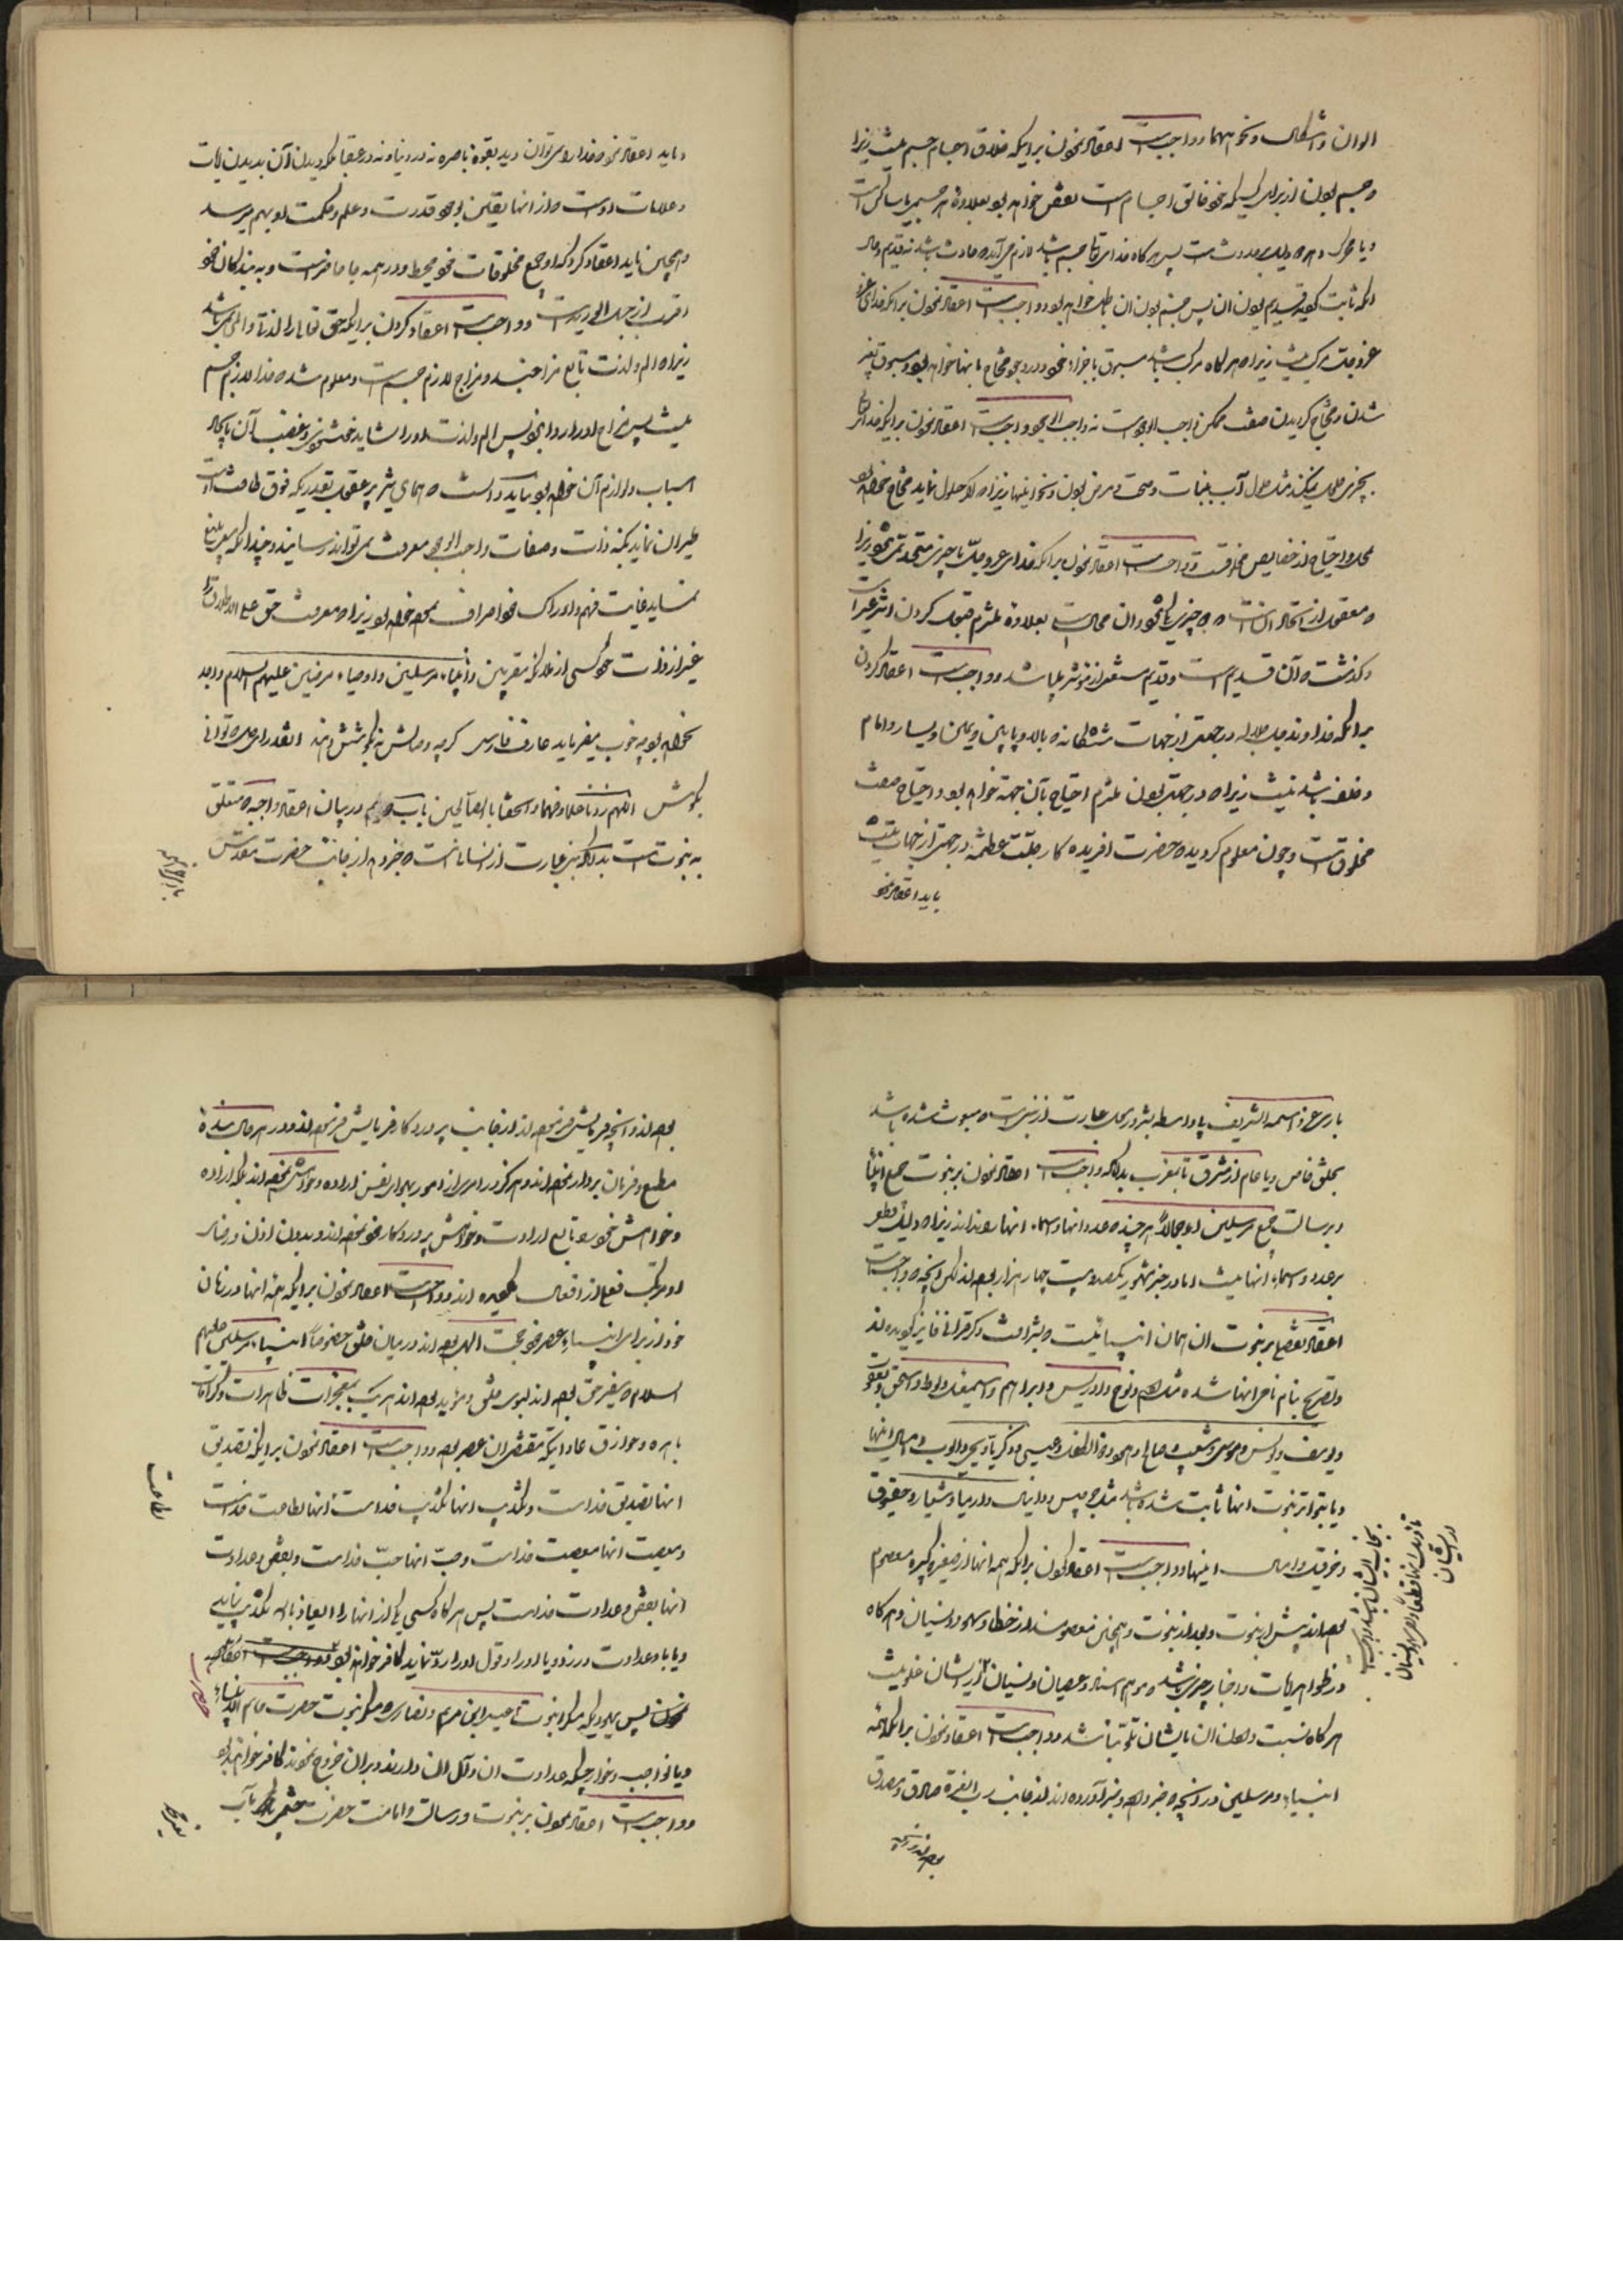 الوان و اشکال و نحو اینها و واجبست اعتقاد نمودن براینکه خلاق اجسام جسم نیست زیرا
و جسم بودن از برای کسیکه خود خالق اجسام است نقص خواهد بود بعلاوه هر جسمی یا ساکن است
و یا متحرک و هر دو دلیل حدوث است پس هر گاه خدای تعالی جسم باشد لازم می‌آید که حادث باشد نه قدیم و حال
آنکه ثابت گردید قدیم بودن آن پس جسم بودن آن باطل خواهد بود و واجبست اعتقاد نمودن براینکه خدای
عز و جل مرکب نیست زیرا که هر گاه مرکب باشد مسبوق باجزاء خود و در وجود محتاج بآنها خواهد بود و مسبوق بغیر
شدن و محتاج گردیدن صفت ممکن واجب الوجود است نه واجب الوجود و واجبست اعتقاد نمودن براینکه خدای تعالی
بچیزی حلول نمیکند مثل حلول آب بنبات و صحت و مرض ببدن و نحو اینها زیرا که اگر حلول نماید محتاج خواهد بود
بمحل و احتیاج از خصایص مخلوقست و واجبست اعتقاد نمودن براینکه خدای عز و جل با چیزی متحد نمیشود زیرا
که معقول از اتحاد آن است که دو چیز یکی شود و آن محال است بعلاوه مستلزم قبول کردن اثر غیر است
و گذشت که آن قدیم است و قدیم مستغنی از مؤثر میباشد و واجبست اعتقاد کردن
براینکه خداوند جل جلاله در جهتی از جهات ششگانه که بالا و پایین و یمین و یسار و امام
و خلف باشد نیست زیرا که در جهت بودن مستلزم احتیاج بآن جهة خواهد بود و احتیاج صفت
مخلوقست و چون معلوم گردید که حضرت آفریده کار جلت عظمته در جهتی از جهات نیست
باید اعتقاد نمود
و باید اعتقاد نمود خدا را نمی‌توان دید بقوه باصره نه در دنیا و نه در عقبا بلکه دیدن آن بدیدن آیات
و علامات اوست که از آنها یقین بوجود قدرت و علم و حکمت او بهم میرسد
و همچنین باید اعتقاد کرد که او بجمیع مخلوقات خود محیط و در همه جا حاضر است و به بندگان خود
اقرب از حبل الورید است و واجبست اعتقاد کردن براینکه حق تعالی را لذت و الم نمی‌باشد
زیرا که الم و لذت تابع مزاجند و مزاج لازم جسم است و معلوم شد که خدا لازم جسم
نیست پس مزاج او را روا نبود پس الم و لذت او را نشاید خشنودی و غضب آن بایجاد
اسباب و لوازم آن خواهد بود باید دانست که همای بشر بر عقول بقدریکه فوق طاقت است
طیران نماید بکنه ذات و صفات واجب الوجود معرفت نمی‌تواند رسانید و چندانکه سعی بلیغ
نماید غایت فهم و ادراک خود اعتراف بعجز خواهد بود زیرا که معرفت حق علی الاطلاق را
غیر از ذات خود کسی از ملائکه مقربین و انبیاء مرسلین و اوصیاء مرضیین علیهم السلام واجد
نخواهد بود چه خوب میفرماید عارف فارسی گرچه وصالش نه بکوشش دهند آنقدر ای دل که توانی
بکوش اللهم زدنا علما و فهما و الحقنا بالصالحین باب دویم در بیان اعتقاد واجبه متعلق
به نبوت است بدانکه نبی عبارت از انسانست که خبر دهد از جانب حضرت مقدس
باری عز اسمه الشریف بلا واسطه بشر و رسول عبارت از نبی است که مبعوث شده باشد
بخلق خاص و یا عام از مشرق تا بمغرب بدانکه واجبست اعتقاد نمودن بر نبوت جمیع انبیا
و برسالت جمیع مرسلین اجمالاً هر چند که عدد آنها و اسماء آنها را نداند زیرا که دلیل قطعی
بر عدد و اسماء آنها نیست اما در خبر مشهور یکصد و بیست و چهار هزار بوده‌اند لکن آنچه که واجبست
اعتقاد تفصیلا بر نبوت آن همان انبیائیست که بشرافت ذکر قرآنی فایز گردیده‌اند
و تصریح بنام نامی آنها شده مثل آدم و نوح و ادریس و ابراهیم و اسمعیل و لوط و اسحق و یعقوب
و یوسف و یونس و موسی و شعیب و صالح و هود و ذا الکفل و عیسی و زکریا و یحیی و ایوب و امثال اینها
و یا بتواتر نبوت آنها ثابت شده باشد مثل جرجیس و دانیال و ارمیا و شعیا و حیقوق
و حزقیل و امثال اینها و واجبست اعتقاد نمودن براینکه همه آنها از صغیره و کبیره معصوم
بوده‌اند پیش از نبوت و بعد از نبوت و همچنین معصومند از خطا و سهو و نسیان و هر گاه
در ظواهر آیات و اخبار چیزی باشد که موهم اسناد عصیان و نسیان از ایشان خلاف نیست
هر گاه نسبت دادن آن بایشان ثابت نباشد و واجبست اعتقاد نمودن براینکه همه
انبیاء و مرسلین در آنچه خبر داده و خبر آورده‌اند از جانب رب العزة صادق و مصدق
بوده‌اند و آنچه
بوده‌اند و آنچه فرمایش فرموده‌اند از جانب پروردگار فرمایش فرموده‌اند و در هر حال بنده
مطیع و فرمان بردار بوده‌اند و هرگز در امری از امور بهوای نفس اراده و خواهش نکرده‌اند بلکه اراده
و خواهش خود را تابع ارادت و خواهش پروردگار خود نموده‌اند و بدون اذن و رضای
او مرتکب فعلی از افعال نگردیده‌اند و واجبست اعتقاد نمودن براینکه همه آنها در زمان
خود از برای اهل عصر خود حجت الهی بوده‌اند در میان خلق خصوصاً انبیاء مرسلین علیهم
السلام که سفیر حق بوده‌اند بسوی خلق و مؤید بوده‌اند هر یک بمعجزات ظاهرات و کرامات
باهره و خوارق عاداتیکه مقتضی آن عصر بوده و واجبست اعتقاد نمودن براینکه تصدیق
آنها تصدیق خداست و تکذیب آنها تکذیب خداست آنها اطاعت خداست
و معصیت آنها معصیت خداست و حب آنها حب خداست و بغض و عداوت
آنها بغض و عداوت خداست پس هر گاه کسی یکی از آنها را العیاذ بالله تکذیب نماید
و یا با او عداوت ورزد و یا او را و قول او را رد نماید کافر خواهد بود
پس یهود که منکر نبوت عیسی ابن مریم و نصاری که منکر نبوت حضرت خاتم الانبیاء
و یا نواصب و خوارج که عداوت آن و آل آن دارند و بر آن خروج نمودند کافر خواهند بود
و واجبست اعتقاد نمودن بر نبوت و رسالت و امامت حضرت ختمی مآب
اطاعت